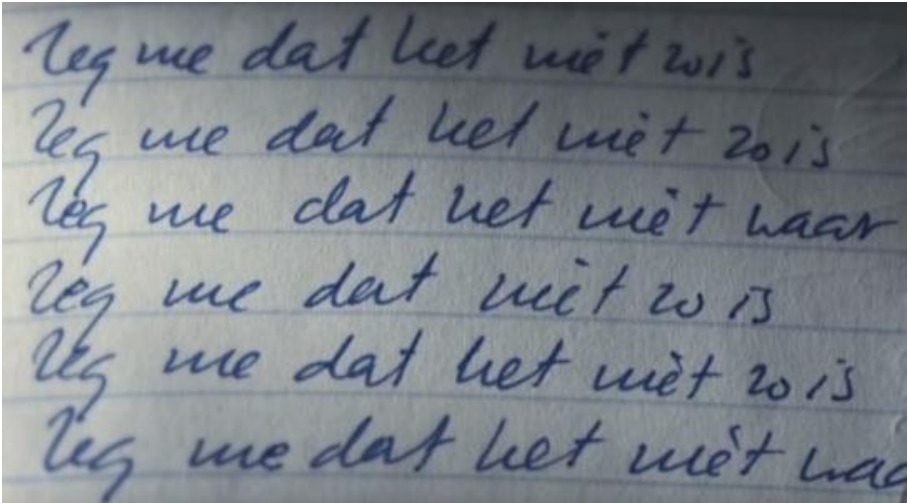 Zeg me dat het niet zo is
Zeg me dat het niet zo is
Zeg me dat het niet waar
Zeg me dat niet zo is
Zeg me dat het niet zo is
Zeg me dat het niet waa